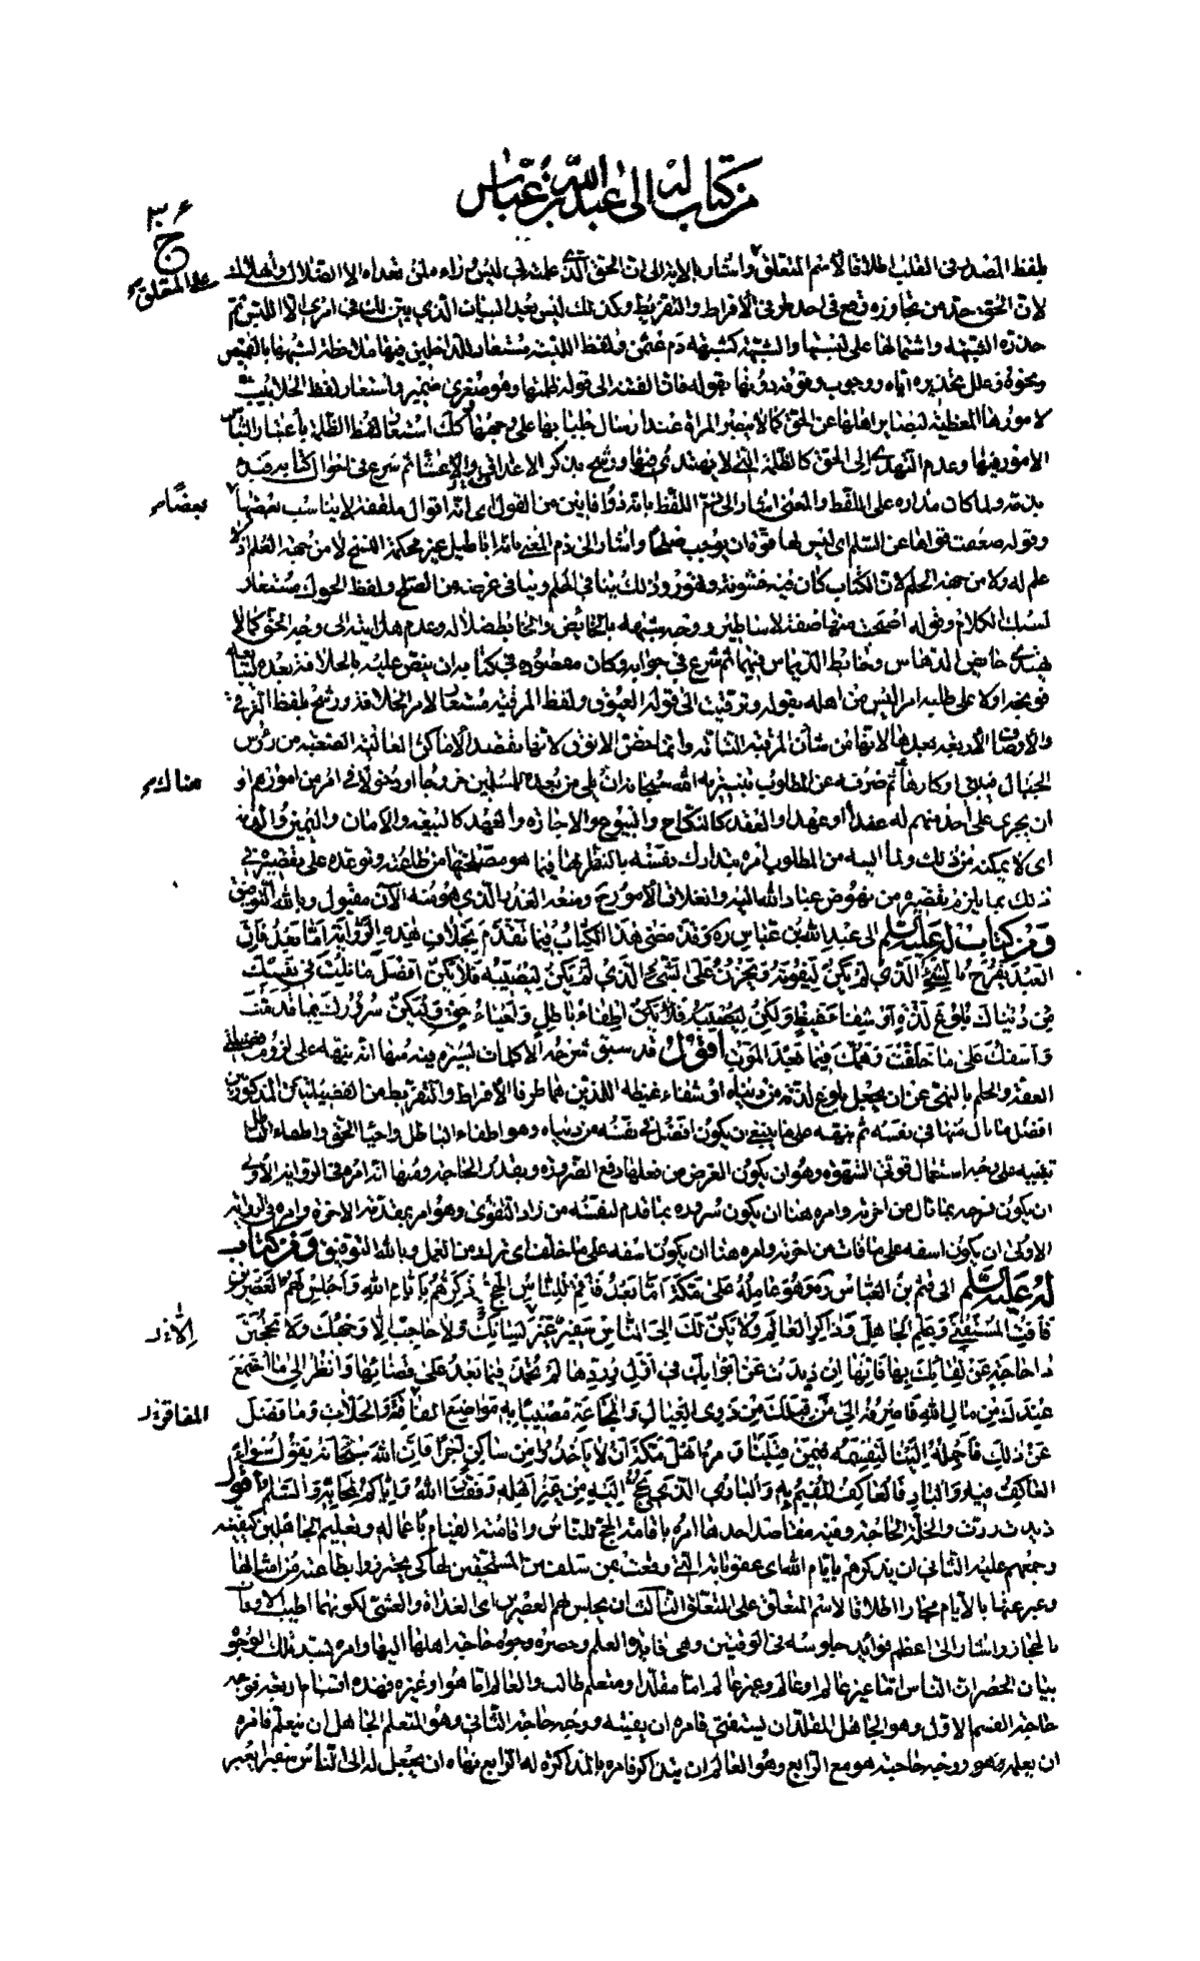 من كتاب له الى عبد الله بن عباس
بلفظ المصدر في القلب اطلاقا لاسم المتعلق واشار بالاية الى ان الحق الذي علمته في ليس وراءه لمن تعداه الا الضلال والهلاك
على المتعلق
لان الحق حد من تجاوزه وقع في احد طرفي الافراط والتفريط وكذلك ليس بعد البيان الذي بين لك في امري الا اللبس ثم
حذره الشبهة واشتمالها على لبستها والشبهة كشبهة دم عثمن ولفظ اللبسة مستعار للداخلين فيها ملاحظة لشبهها بالقميص
ونحوه وعلل تحذيره اياه ووجوب وقوفه دونها بقوله فان الفتنة الى قوله ظلمتها وهو صغرى ضمير واستعار لفظ الجلابيب
لامورها المغطية لبصائر اهلها عن الحق كما لا يبصر المراة عند ارسال جلبابها على وجهها وكك استعار لفظ الظلمة باعتبار التباس
الامور فيها وعدم التهدي الى الحق كالظلمة التي لا يهتدى فيها ورشح بذكر الاغداف والاعشاء ثم شرع في احوال كتابه فبدء
بذمه ولما كان مداره على اللفظ والمعنى اشار الى ذم اللفظ بانه ذو افانين من القول اى انه اقوال ملفقة لا يناسب بعضها
بعضا
وقوله ضعفت قواها عن السلم اى ليس لها قوة ان يوجب صلحا واشار الى ذم المعنى بانه اباطيل غير محكمة النسج لا من جهة العلم اذ لا
علم له ولا من جهة الحلم لان الكتاب كان فيه خشونة وتهور وذلك ينافي الحلم وينافي غرضه من الصلح ولفظ الحوك مستعار
لسبك الكلام وقوله اصبحت منها صفة لاساطير ووجه شبهه بالخائض والخابط ضلاله وعدم هدايته الى وجه الحق كما لا
يهتدي خائض الدهاس وخابط الديماس فيهما ثم شرع في جوابه وكان مقصوده في كتابه ان ينص عليه بالخلافة بعده
فوبخه اولا على طلبه امرا ليس من اهله بقوله وترقيت الى قوله العيوق ولفظ المرقبة مستعار لامر الخلافة ورشح بلفظ الترقي
والاوصاف الاربعة بعدها لانها من شأن المرقبة التامة وانما خص الانوق لانها تقصد الاماكن العالية الصعبة من رؤس
الجبال فيبني اوكارها ثم صرفه عن المطلوب بتنزيه الله سبحانه ان يلي من بعده للمسلمين خروجا او دخولا في امر من امورهم او
هناك
ان يجرى على احد منهم له عقدا او عهدا والعقد كالنكاح والبيوع والاجازة والعهد كالبيعة والامان واليمين والذمة
اى لا يمكنه من ذلك ولما ايسه من المطلوب امره بتدارك نفسه بالنظر لها فيما هو مصلحتها من طاعته وتوعده على تقصيره في
ذلك بما يلزم تقصيره من نهوض عباد الله اليه وانغلاق الامور ح ومنعه العذر الذي هو منه الان مقبول وبالله التوفيق
ومن كتاب له عليه السلم الى عبد الله بن عباس ره وقد مضى هذا الكتاب فيما تقدم بخلاف هذه الرواية اما بعد فان
العبد ليفرح بالشيء الذي لم يكن ليفوته ويحزن على الشيء الذي لم يكن ليصيبه فلا يكن افضل ما نلت في نفسك
من دنياك بلوغ لذة او شفاء غيظ ولكن اطفاء باطل واحياء حق وليكن سرورك بما قدمت
واسفك على ما خلفت وهمك فيما بعد الموت اقول قد سبق شرحه الا كلمات يسيرة منها انه نبهه على لزوم فضيلتي
العفة والحلم بالنهى عن ان يجعل بلوغ لذته من دنياه او شفاء غيظه اللذين هما طرفا الافراط والتفريط من الفضيلتين المذكورتين
افضل ما نال منها في نفسه ثم نبهه على ما ينبغي ان يكون افضل في نفسه من دنياه وهو اطفاء الباطل واحياء الحق واطفاء الباطل
تنبيه على وجه استعمال قوتي الشهوة وهو ان يكون الغرض من فعلها دفع الضرورة وبقدر الحاجة ومنها انه امره في الرواية الاولى
ان يكون فرحه بما نال من اخرته وامره هنا ان يكون سروره بما قدم لنفسه من زاد التقوى وهو امر بمقدمة الاخرة وامره في الرواية
الاولى ان يكون اسفه على ما فات من اخرته وامره هنا ان يكون اسفه على ما خلف اى ترك من العمل وبالله التوفيق ومن كتاب
له عليه السلم الى قثم بن العباس ره وهو عامله على مكة اما بعد فاقم للناس الحج وذكرهم بايام الله واجلس لهم العصرين
فافت المستفتي وعلم الجاهل وذاكر العالم ولا يكن لك الى الناس سفير غير لسانك ولا حاجب الا وجهك ولا تحجبن
ذا حاجة عن لقائك بها فانها ان ذيدت عن ابوابك في اول وردها لم تحمد فيما بعد على قضائها وانظر الى ما اجتمع
عندك من مال الله فاصرفه الى من قبلك من ذوى العيال والمجاعة مصيبا به مواضع الفاقة والخلات وما فضل
المفاقر
عن ذلك فاحمله الينا لنقسمه فيمن قبلنا ومر اهل مكة ان لا ياخذوا من ساكن اجرا فان الله سبحانه يقول سواء
العاكف فيه والباد فالعاكف المقيم به والبادى الذي يحج اليه من غير اهله وفقنا الله واياكم لمحابه والسلم اقول
ذيدت ردت والخلة الحاجة وفيه مقاصد احدها امره باقامة الحج للناس واقامته القيام باعماله وتعليم الجاهلين كيفيته
وجمعهم عليه الثاني ان يذكرهم بايام الله اى عقوباته التي وقعت بمن سلف من المستحقين لها كى يحترزوا بطاعته من امثالها
وعبر عنها بالايام مجازا اطلاقا لاسم المتعلق على المتعلق الثالث ان يجلس لهم العصرين اى الغداة والعشى لكونهما اطيب الاوقات
بالحجاز واشار الى اعظم فوائد جلوسه في الوقتين وهي فائدة العلم وحصر وجوه حاجة اهلها اليها وامره بسد تلك الوجوه
بيان الحصر ان الناس اما غير عالم او عالم وغير عالم اما مقلد او متعلم طالب والعالم اما هو او غيره فهذه اقسام اربعة فوجه
حاجة القسم الاول وهو الجاهل المقلد ان يستفتى فامره ان يفتيه ووجه حاجة الثاني وهو المتعلم الجاهل ان يتعلم فامره
ان يعلمه ووجه حاجته هو مع الرابع وهو العالم ان يتذاكر فامره بالمذاكرة له الرابع نهاه ان يجعل له الى الناس سفيرا يعبر